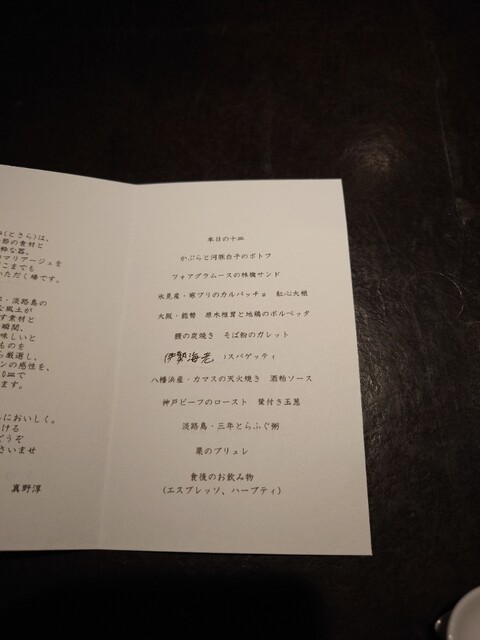 (とさら)は、
節の素材と
粋な器、
マリアージュを
こまでも
いただく場です。
・淡路島の
な風土が
す素材と
瞬間、
味しいと
ものを
ら厳選し、
ンの感性を、
0皿で
ます。
においしく。
ける
どうぞ
さいませ
真野淳
本日の十皿
かぶらと河豚白子のポトフ
フォアグラムースの林檎サンド
氷見産・寒ブリのカルパッチョ 紅心大根
大阪・能勢 原木椎茸と地鶏のポルペッタ
鰻の炭焼き そば粉のガレット
伊勢海老 スパゲッティ
八幡浜産・カマスの天火焼き 酒粕ソース
神戸ビーフのロースト 葉付き玉葱
淡路島・三年とらふぐ粥
栗のブリュレ
食後のお飲み物
(エスプレッソ、ハーブティ)